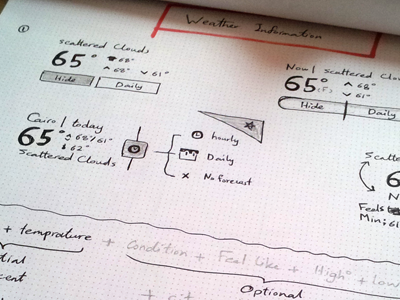 Weather Information
①
scattered Clouds
65° 68°
^ 68° v 61°
Hide Daily
Now | scattered Clo
65° (F) ^ 68°
v 61°
Hide Daily
Cairo / today
65° 68°/61°
62°
Scattered Clouds
hourly
Daily
x No forecast
Scatte
6
Feels
Min: 61
+ temprature + Condition + Feel like + High° + low
tial
cent
Optional